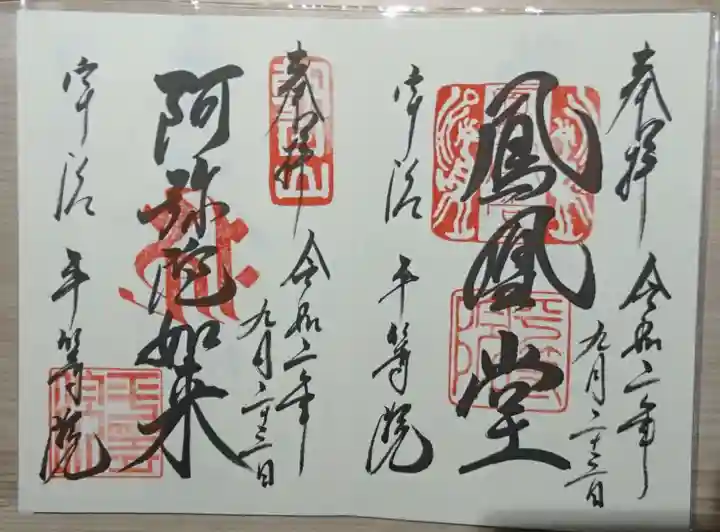 奉拝
令和二年
九月二十二日
鳳凰堂
宇治
平等院
奉拝
令和二年
九月二十二日
阿弥陀如来
宇治
平等院